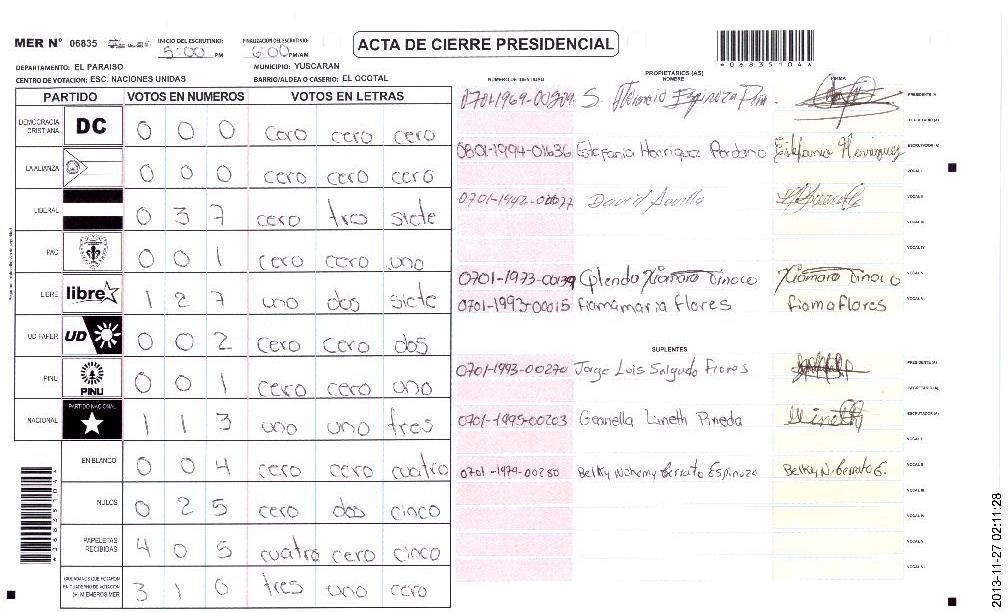 MER N° 06835
INICIO DEL ESCRUTINIO: 5:00 PM
FINALIZACION DEL ESCRUTINIO: 6:00 PM/AM
ACTA DE CIERRE PRESIDENCIAL
DEPARTAMENTO: EL PARAISO
MUNICIPIO: YUSCARAN
CENTRO DE VOTACION: ESC. NACIONES UNIDAS
BARRIO/ALDEA O CASERIO: EL OCOTAL
PARTIDO VOTOS EN NUMEROS VOTOS EN LETRAS
DEMOCRACIA CRISTIANA DC 0 0 0 cero cero cero
LA ALIANZA 0 0 0 cero cero cero
LIBERAL 0 3 7 cero tres siete
PAC 0 0 1 cero cero uno
LIBRE libre 1 2 7 uno dos siete
UD FAPER UD 0 0 2 cero cero dos
PINU PINU 0 0 1 cero cero uno
NACIONAL PARTIDO NACIONAL 1 1 3 uno uno tres
EN BLANCO 0 0 4 cero cero cuatro
NULOS 0 2 5 cero dos cinco
PAPELETAS RECIBIDAS 4 0 5 cuatro cero cinco
CIUDADANOS QUE VOTARON EN CUADERNO DE VOTACION (+) MIEMBROS MER 3 1 0 tres uno cero
*06835104*
NUMERO DE IDENTIDAD
PROPIETARIOS (AS)
NOMBRE
FIRMA
S. Espinoza
PRESIDENTE (A)
SECRETARIO (A)
0801-1994-01636 Estefania Henriquez Estefania Henriquez ESCRUTADOR (A)
VOCAL I
David VOCAL II
VOCAL III
VOCAL IV
0701-1973-00139 Xiomara Tinoco Xiomara Tinoco VOCAL V
0701-1993-00015 fiamamaria flores fiamaflores VOCAL VI
SUPLENTES
0701-1993-00270 Jorge Luis Salgado Flores PRESIDENTE (A)
SECRETARIO (A)
0701-1995-00203 Geanella Lineth Pineda Lineth ESCRUTADOR (A)
VOCAL I
0701-1979-00280 Belky Nohemy Berrato Espinoza Belky N. Berrato E. VOCAL II
VOCAL III
VOCAL IV
VOCAL V
VOCAL VI
2013-11-27 02:11:28